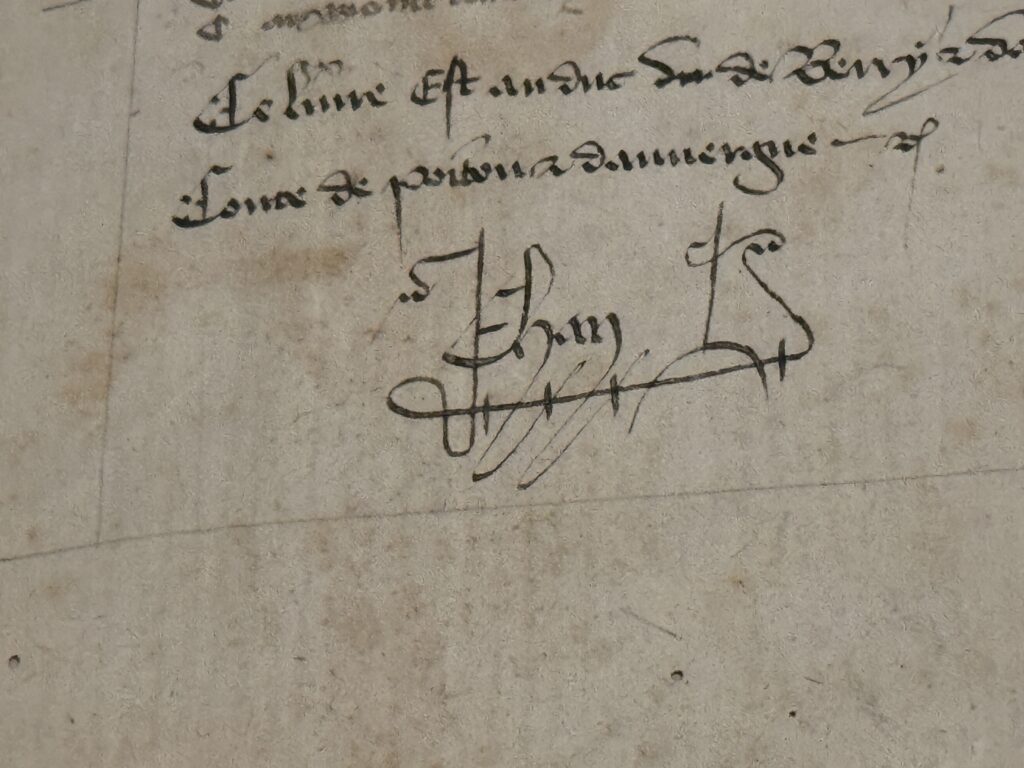 Ce liure Est au duc de Berry & da
Conte de poitou & dauuergne
Jehan B